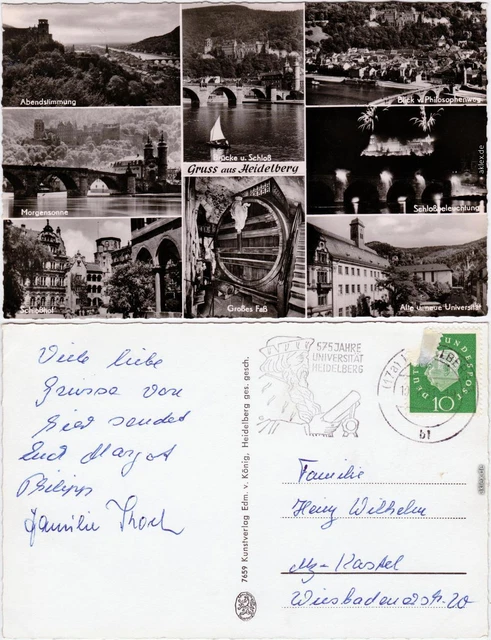 Abendstimmung
Brücke u. Schloß
Blick v. Philosophenweg
Gruss aus Heidelberg
Morgensonne
Schloßbeleuchtung
Schloßhof
Großes Faß
Alte u. neue Universität
aklex.de
Viele liebe
Grüsse von
hier sendet
Euch Margot
Philipp
Familie
7659 Kunstverlag Edm. v. König, Heidelberg ges. gesch.
575 JAHRE
UNIVERSITÄT
HEIDELBERG
(17a)
bf
DEUTSCHE BUNDESPOST
10
Familie
Heinz Wilhelm
Mz-Kastel
Wiesbadenerstr. 20